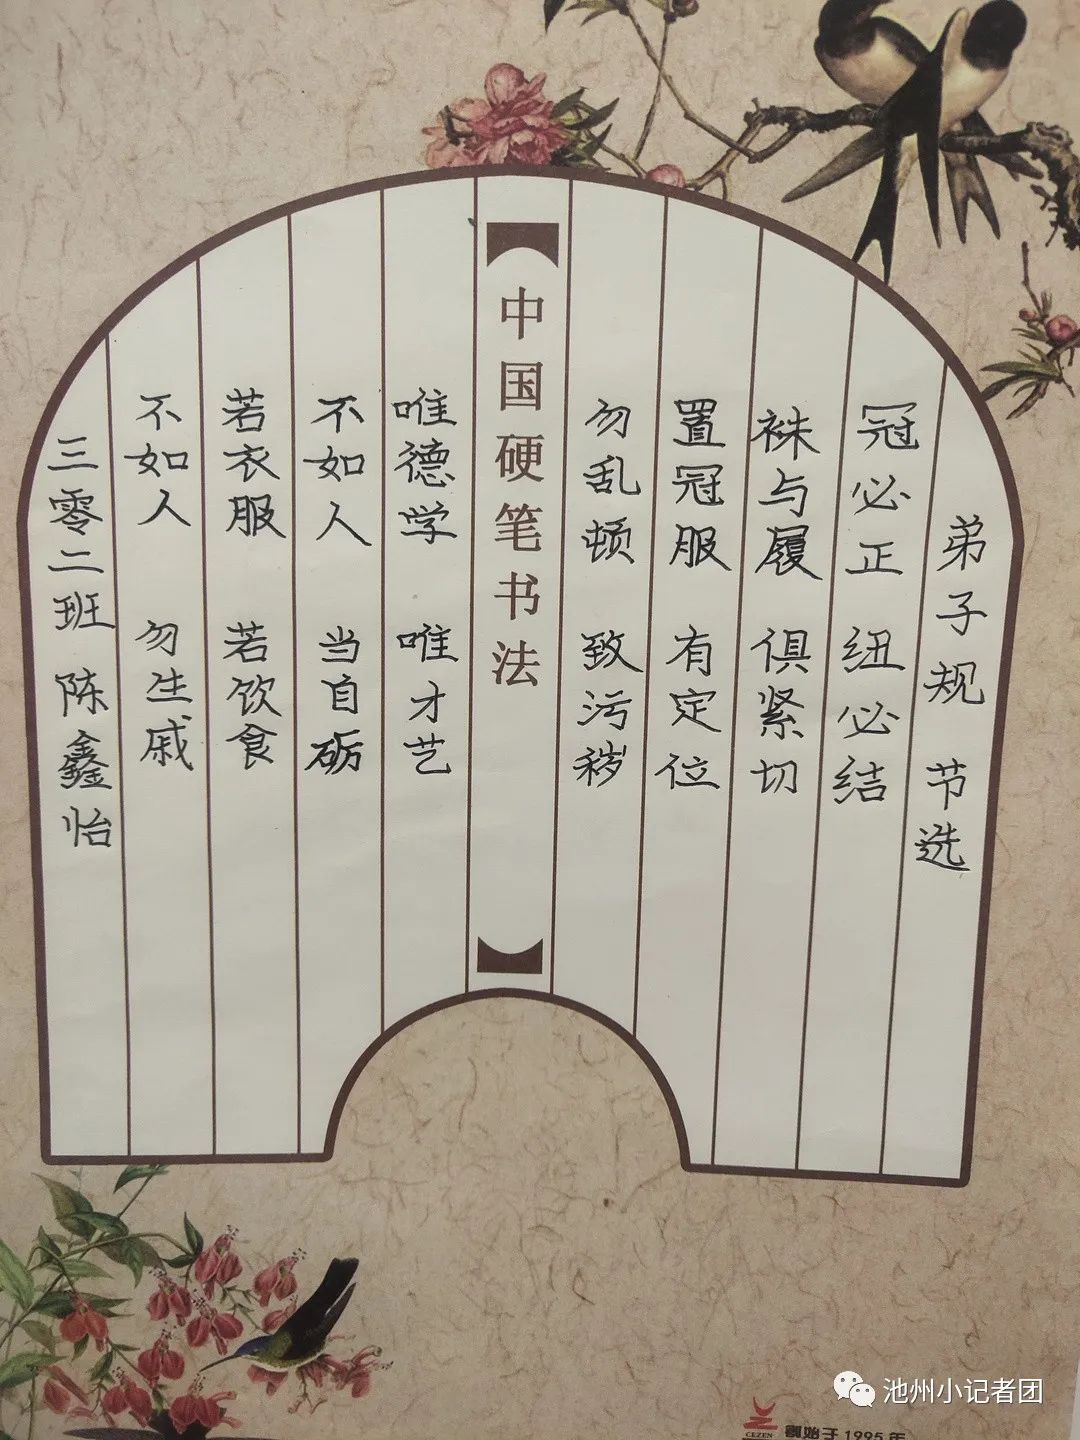 弟子规 节选
冠必正 纽必结
袜与履 俱紧切
置冠服 有定位
勿乱顿 致污秽
中国硬笔书法
唯德学 唯才艺
不如人 当自砺
若衣服 若饮食
不如人 勿生戚
三零二班 陈鑫怡
池州小记者团
CEZEN 創始于1995年